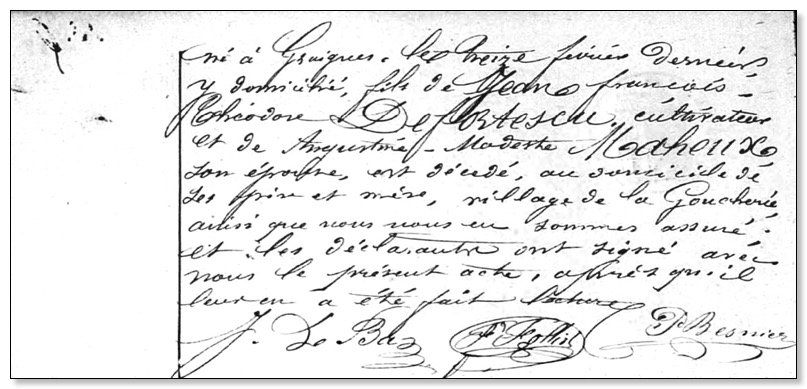 né à Graignes, le treize février dernier
y domicilié, fils de Jean françois
Théodore Defortescu, cultivateur
et de Augustine Modeste Maheux
son épouse, est décédé, au domicile de
ses père et mère, village de la Goucherie
ainsi que nous nous en sommes assuré.
et les déclarants ont signé avec
nous le présent acte, après qu'il
leur en a été fait lecture
J. Le Bas F. Follin P. Besnier